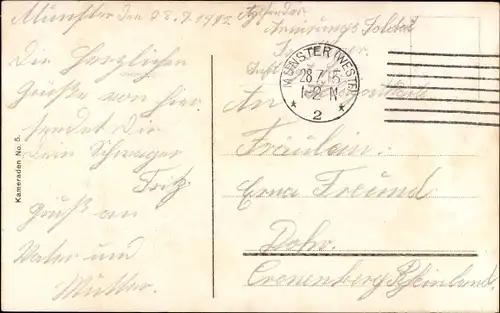 Münster den 28.7.1915
Die Herzlichen
Grüße von hier
sendet Dir
Dein Schwager
Fritz
Gruß an
Vater und
Mutter.
Kameraden No. 5.
Absender
Armirungs Soldat
MÜNSTER (WESTF.)
28.7.15
1-2 N
* 2 *
An
Fräulein:
Erna Freund
Dohr.
Cronenberg Rheinland.